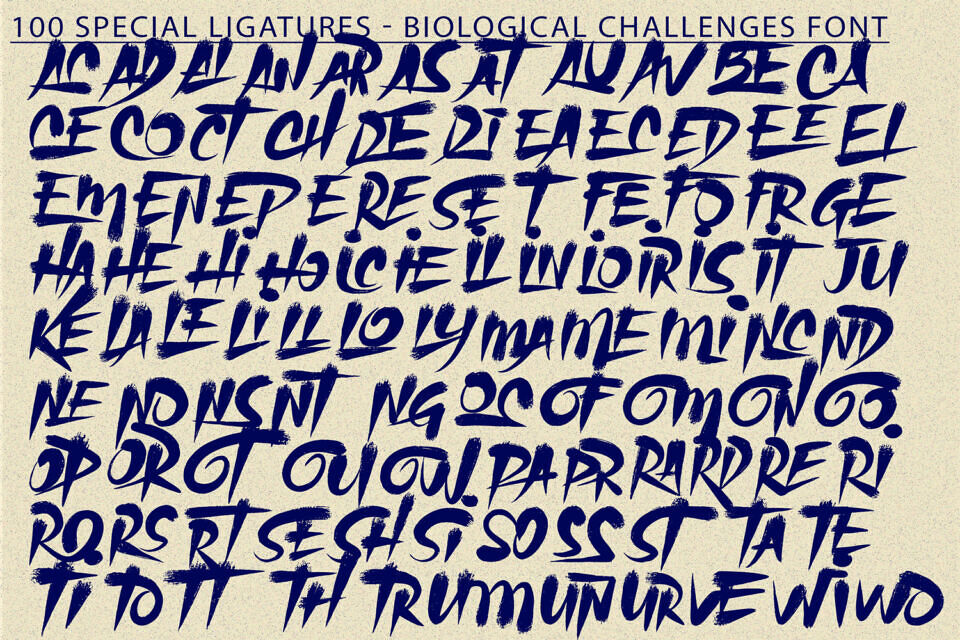 100 SPECIAL LIGATURES - BIOLOGICAL CHALLENGES FONT
AC AD AL AN AR AS AT AU AV BE CA
CE CO CT CH DE DI EA EC ED EE EL
EM EN EP ER ES ET FE FO FR GE
HA HE HI HO IC IE IL IN IO IR IS IT JU
KE LA LE LI LL LO LY MA ME MI NC ND
NE NO NS NT NG OC OF OM ON OO
OP OR OT OU OW PA PR RA RD RE RI
RO RS RT SE SH SI SO SS ST TA TE
TI TO TT TH TR UM UN UR VE WI WO